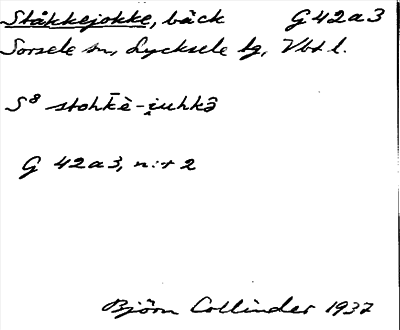 Ståkkejokke, bäck G 42 a 3
Sorsele sn, Lycksele lg, Vbt l.
S⁸ stohk̄è-i̯uhkə̂
G 42 a 3, n:r 2
Björn Collinder 1937